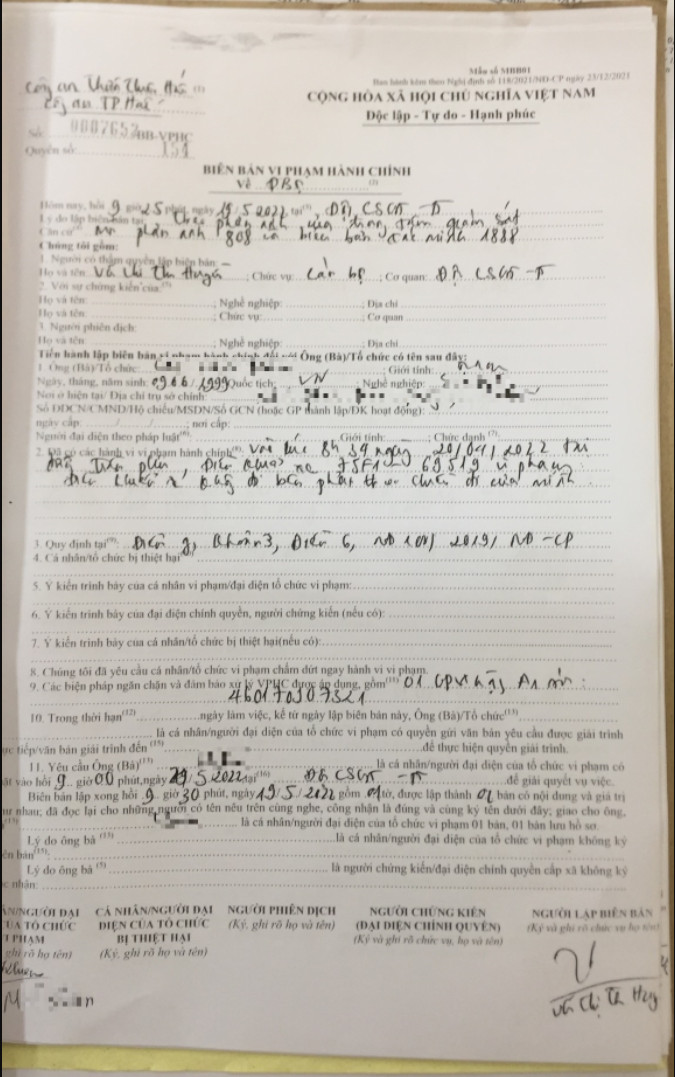 Mẫu số MBB01
Ban hành kèm theo Nghị định số 118/2021/NĐ-CP ngày 23/12/2021
Công an Thừa Thiên Huế (1)
Công an TP Huế
CỘNG HÒA XÃ HỘI CHỦ NGHĨA VIỆT NAM
Độc lập - Tự do - Hạnh phúc
Số: 0087652/BB-VPHC
Quyển số: 154
BIÊN BẢN VI PHẠM HÀNH CHÍNH
Về ĐBS (2)
Hôm nay, hồi 9 giờ 25 phút, ngày 19/5/2022 tại Đội CSGT-TT
Lý do lập biên bản tại: theo phản ánh của trung tâm giám sát
Căn cứ mã phản ánh 808 và biên bản xác minh 1888
Chúng tôi gồm:
1. Người có thẩm quyền lập biên bản:
Họ và tên: Võ Thị Thu ; Chức vụ: Cán bộ ; Cơ quan: Đội CSGT-TT
2. Với sự chứng kiến của:
Họ và tên: ; Nghề nghiệp: ; Địa chỉ
Họ và tên: ; Chức vụ: ; Cơ quan
3. Người phiên dịch:
Họ và tên: ; Nghề nghiệp: ; Địa chỉ
Tiến hành lập biên bản vi phạm hành chính đối với Ông (Bà)/Tổ chức có tên sau đây:
1. Ông (Bà)/Tổ chức: Giới tính:
Ngày, tháng, năm sinh: /1999 Quốc tịch: VN ; Nghề nghiệp:
Nơi ở hiện tại/ Địa chỉ trụ sở chính:
Số ĐDCN/CMND/Hộ chiếu/MSDN/Số GCN (hoặc GP thành lập/ĐK hoạt động):
ngày cấp: / / ; nơi cấp:
Người đại diện theo pháp luật: Giới tính: ; Chức danh (7):
2. Đã có các hành vi vi phạm hành chính: Vào lúc 8h 39 ngày 20/04/2022 tại
điều khiển xe 75F1 69519 vi phạm:
Điều khiển xe không đi bên phải theo chiều đi của mình
3. Quy định tại: Điểm g, Khoản 3, Điều 6, NĐ 100/2019/NĐ-CP
4. Cá nhân/tổ chức bị thiệt hại
5. Ý kiến trình bày của cá nhân vi phạm/đại diện tổ chức vi phạm:
6. Ý kiến trình bày của đại diện chính quyền, người chứng kiến (nếu có):
7. Ý kiến trình bày của cá nhân/tổ chức bị thiệt hại(nếu có):
8. Chúng tôi đã yêu cầu cá nhân/tổ chức vi phạm chấm dứt ngay hành vi vi phạm.
9. Các biện pháp ngăn chặn và đảm bảo xử lý VPHC được áp dụng, gồm(11) 01 GPLX hạng A1 số:
10. Trong thời hạn(12) ngày làm việc, kể từ ngày lập biên bản này, Ông (Bà)/Tổ chức(13)
là cá nhân/người đại diện của tổ chức vi phạm có quyền gửi văn bản yêu cầu được giải trình
ực tiếp/văn bản giải trình đến (15) để thực hiện quyền giải trình.
11. Yêu cầu Ông (Bà)(13) là cá nhân/người đại diện của tổ chức vi phạm có
ặt vào hồi 9 giờ 00 phút, ngày 29/5/2022 tại(16) Đội CSGT-TT để giải quyết vụ việc.
Biên bản lập xong hồi 9 giờ 30 phút, ngày 19/5/2022 gồm 01 tờ, được lập thành 02 bản có nội dung và giá trị
ư nhau; đã đọc lại cho những người có tên nêu trên cùng nghe, công nhận là đúng và cùng ký tên dưới đây; giao cho ông,
là cá nhân/người đại diện của tổ chức vi phạm 01 bản, 01 bản lưu hồ sơ.
Lý do ông bà (13) là cá nhân/người đại diện của tổ chức vi phạm không ký
ên bản
Lý do ông bà (5) là người chứng kiến/đại diện chính quyền cấp xã không ký
nhận:
ÂN/NGƯỜI ĐẠI CÁ NHÂN/NGƯỜI ĐẠI NGƯỜI PHIÊN DỊCH NGƯỜI CHỨNG KIẾN NGƯỜI LẬP BIÊN BẢN
ỦA TỔ CHỨC DIỆN CỦA TỔ CHỨC (Ký, ghi rõ họ và tên) (ĐẠI DIỆN CHÍNH QUYỀN) (Ký và ghi rõ chức vụ, họ và tên)
PHẠM BỊ THIỆT HẠI (Ký và ghi rõ chức vụ, họ và tên)
ghi rõ họ tên) (Ký, ghi rõ họ và tên)
Võ Thị Thu